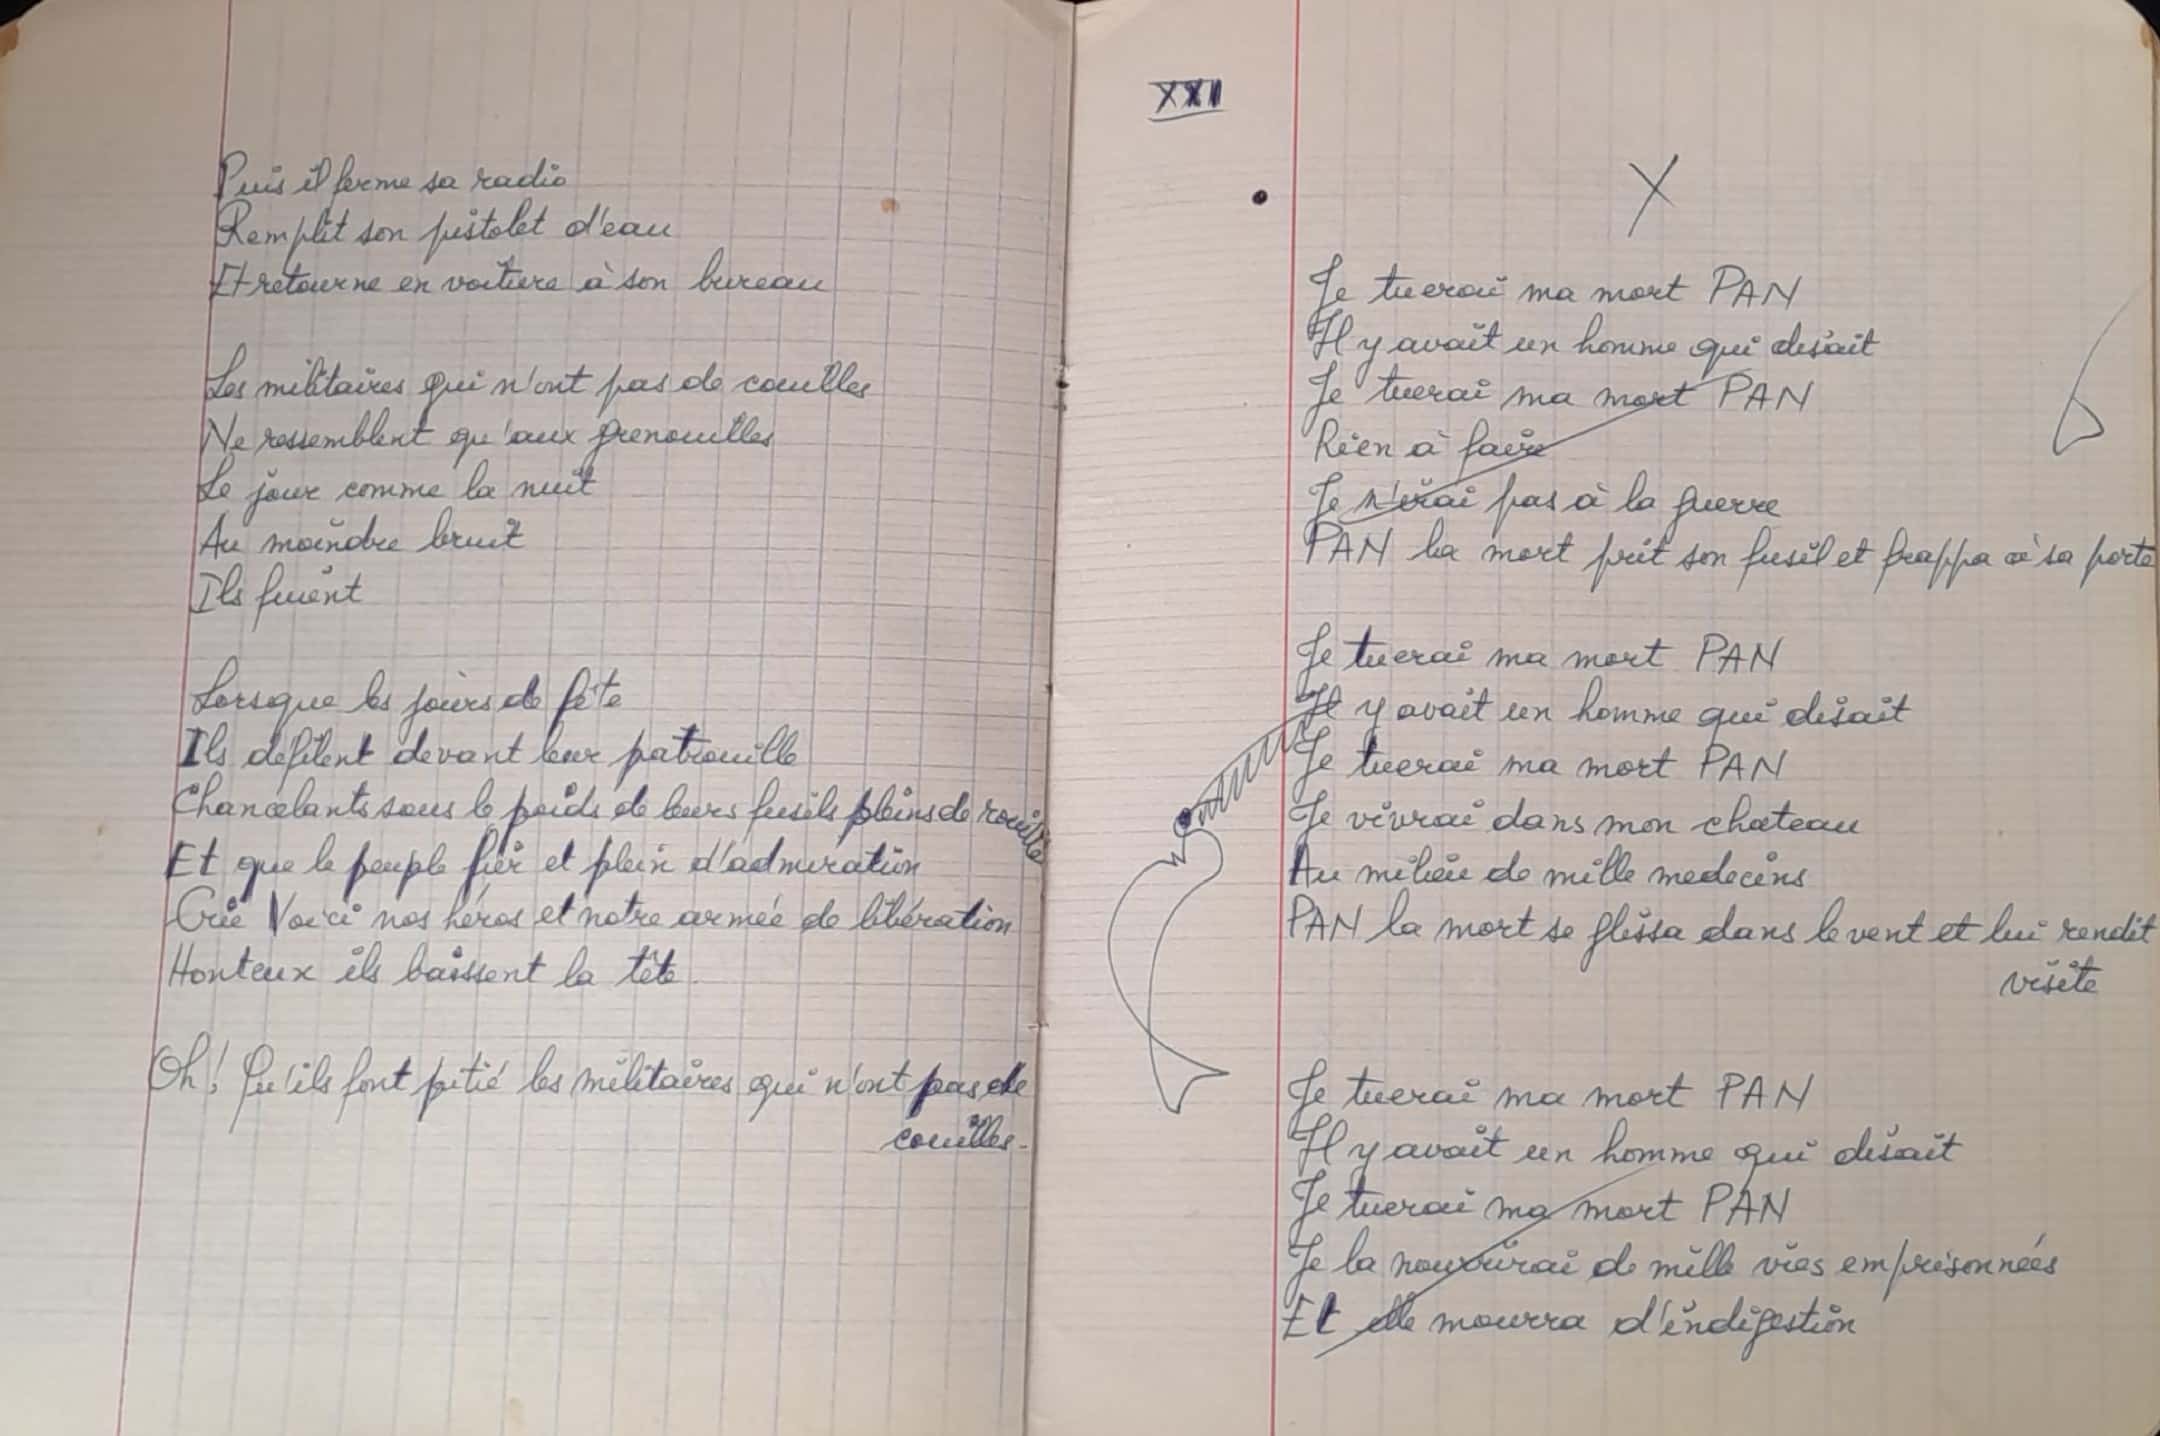 Puis il ferme sa radio
Remplit son pistolet d'eau
Et retourne en voiture à son bureau
Les militaires qui n'ont pas de couilles
Ne ressemblent qu'aux grenouilles
Le jour comme la nuit
Au moindre bruit
Ils fuient
Lorsque les jours de fête
Ils défilent devant leur patrouille
Chancelants sous le poids de leurs fusils pleins de rouille
Et que le peuple fier et plein d'admiration
Crie Voici nos héros et notre armée de libération
Honteux ils baissent la tête.
Oh! Qu'ils font pitié les militaires qui n'ont pas de
couilles.
XXII
X
Je tuerai ma mort PAN
Il y avait un homme qui disait
Je tuerai ma mort PAN
Rien à faire
Je n'irai pas à la guerre
PAN la mort prit son fusil et frappa à sa porte
Je tuerai ma mort PAN
Il y avait un homme qui disait
Je tuerai ma mort PAN
Je vivrai dans mon chateau
Au milieu de mille medecins
PAN la mort se glissa dans le vent et lui rendit
visite
Je tuerai ma mort PAN
Il y avait un homme qui disait
Je tuerai ma mort PAN
Je la nourrirai de mille vies emprisonnées
Et elle mourra d'indigestion